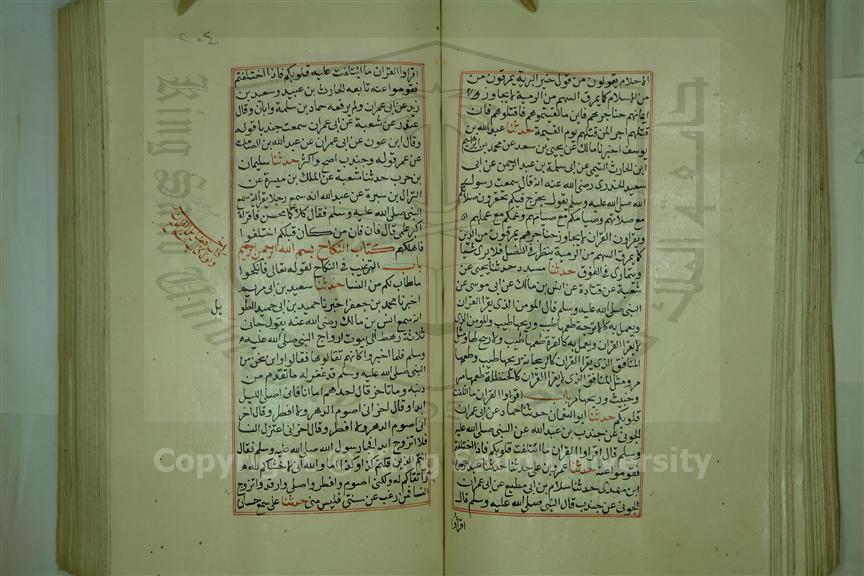 الاحلام يقولون من قول خير البرية يمرقون من
من الاسلام كما يمرق السهم من الرمية لا يجاوز
ايمانهم حناجرهم فاين ما لقيتموهم فاقتلوهم فان
قتلهم اجر لمن قتلهم يوم القيمة حدثنا عبد الله بن
يوسف اخبرنا مالك عن يحيى بن سعد عن محمد بن ابراهيم
ابن الحارث التيمي عن ابي سلمة بن عبد الرحمن عن ابي
سعيد الخدري رضي الله عنه انه قال سمعت رسول
الله صلى الله عليه وسلم يقول يخرج فيكم تحقرون صلاتكم
مع صلاتهم وصيامكم مع صيامهم وعملكم مع عملهم
ويقراون القران لا يجاوز حناجرهم يمرقون من الدين
كما يمرق السهم من الرمية ينظر في النصل فلا يرى شيا
ويتمارى في الفوق حدثنا مسدد حدثنا يحيى عن
شعبة عن قتادة عن انس بن مالك عن ابي موسى عن
النبي صلى الله عليه وسلم قال المومن الذي يقرا القران
ويعمل به كالاترجة طعمها طيب وريحها طيب والمومن الذي
لا يقرا القران ويعمل به كالتمرة طعمها طيب ولا ريح لها ومثل
المنافق الذي يقرا القران كالريحانة ريحها طيب وطعمها
مر ومثل المنافق الذي لا يقرا القران كالحنظلة طعمها مر
وخبيث وريحها مر باب اقراوا القران ما ائتلفت
قلوبكم حدثنا ابو النعمان حدثنا حماد عن ابي عمران
الجوني عن جندب بن عبد الله عن النبي صلى الله عليه
وسلم قال اقراوا القران ما ائتلفت قلوبكم فاذا اختلفتم
فقوموا عنه حدثنا عمرو بن علي حدثنا عبد الرحمن
ابن مهدي حدثنا سلام بن ابي مطيع عن ابي عمران
الجوني عن جندب قال النبي صلى الله عليه وسلم قال
اقراوا
٢٠٤
اقراوا القران ما ائتلفت عليه قلوبكم فاذا اختلفتم
فقوموا عنه تابعه الحارث بن عبيد وسعيد بن
زيد عن ابي عمران ولم يرفعه حماد بن سلمة وابان وقال
غندر عن شعبة عن ابي عمران سمعت جندبا قوله
وقال ابن عون عن ابي عمران عن عبد الله بن الصامت
عن عمر قوله وجندب اصح واكثر حدثنا سليمان
بن حرب حدثنا شعبة عن الملك بن ميسرة عن
النزال بن سبرة عن عبد الله انه سمع رجلا يقرا اية سمع
النبي صلى الله عليه وسلم فقال كلاكما محسن فاقراا
اكبر علمي قال فان من كان قبلكم اختلفوا
فاهلكهم كتاب النكاح بسم الله الرحمن الرحيم
باب الترغيب في النكاح لقوله تعالى فانكحوا
ما طاب لكم من النسا حدثنا سعيد بن ابي مريم
اخبرنا محمد بن جعفر اخبرنا حميد بن ابي حميد الطو
يل
انه سمع انس بن مالك رضي الله عنه يقول جاء
ثلاثة رهط الى بيوت ازواج النبي صلى الله عليه
وسلم فلما اخبروا كانهم تقالوها فقالوا واين نحن من
النبي صلى الله عليه وسلم قد غفر له ما تقدم من
ذنبه وما تاخر قال احدهم اما انا فاني اصلي الليل
ابدا وقال اخر انا اصوم الدهر ولا افطر وقال اخر
انا اصوم الدهر ولا افطر وقال اخر انا اعتزل النسا
فلا اتزوج ابدا فجا رسول الله صلى الله عليه وسلم فقال
انتم الذين قلتم كذا وكذا اما والله اني لاخشاكم لله
واتقاكم له ولكني اصوم وافطر واصلي وارقد واتزوج
النسا فمن رغب عن سنتي فليس مني حدثنا علي سمع حسان
King Saud University
جامعة الملك سعود
Copyright © King Saud University